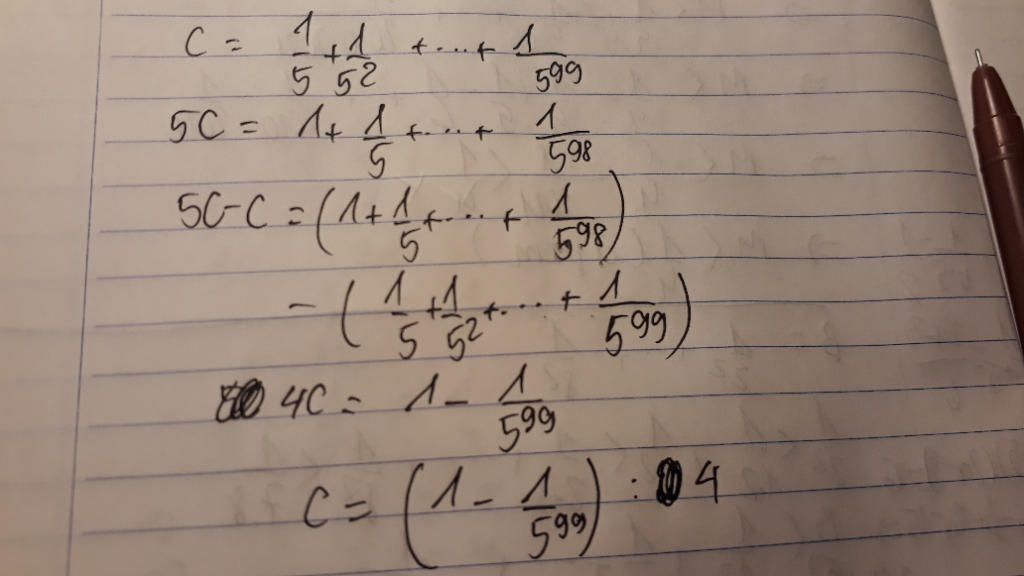 C = 1/5 + 1/5² + ... + 1/5⁹⁹
5C = 1 + 1/5 + ... + 1/5⁹⁸
5C - C = (1 + 1/5 + ... + 1/5⁹⁸)
- (1/5 + 1/5² + ... + 1/5⁹⁹)
4C = 1 - 1/5⁹⁹
C = (1 - 1/5⁹⁹) : 4